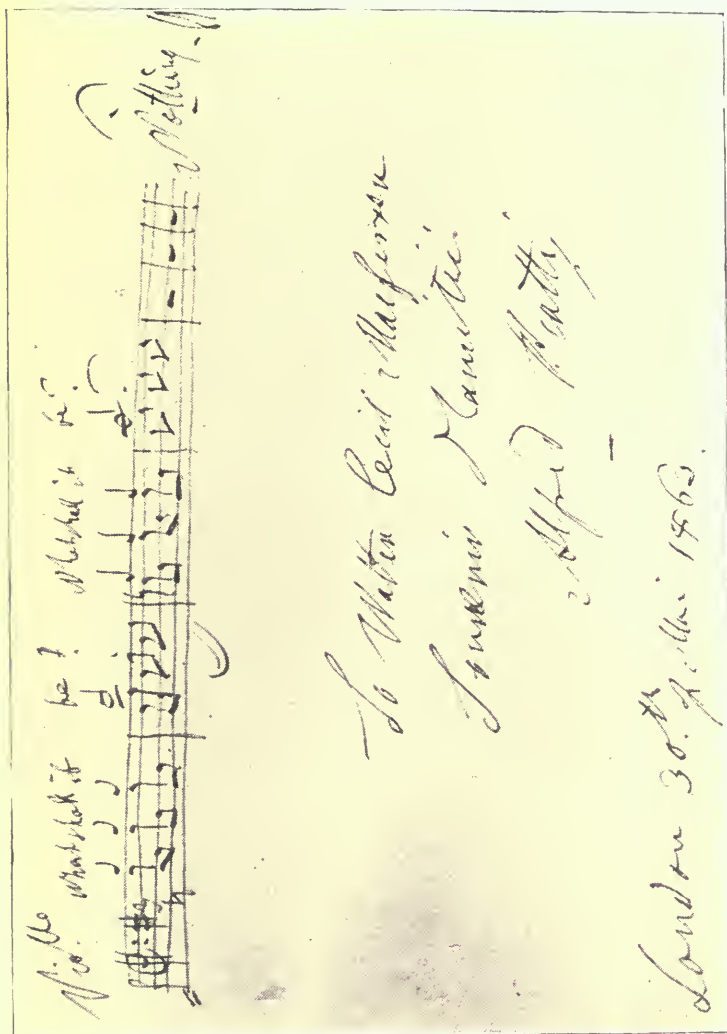 What shall it be? What shall it be?
Nothing
To Walter Cecil Macfarren
Souvenir
Alfred Piatti
London 30.th 186